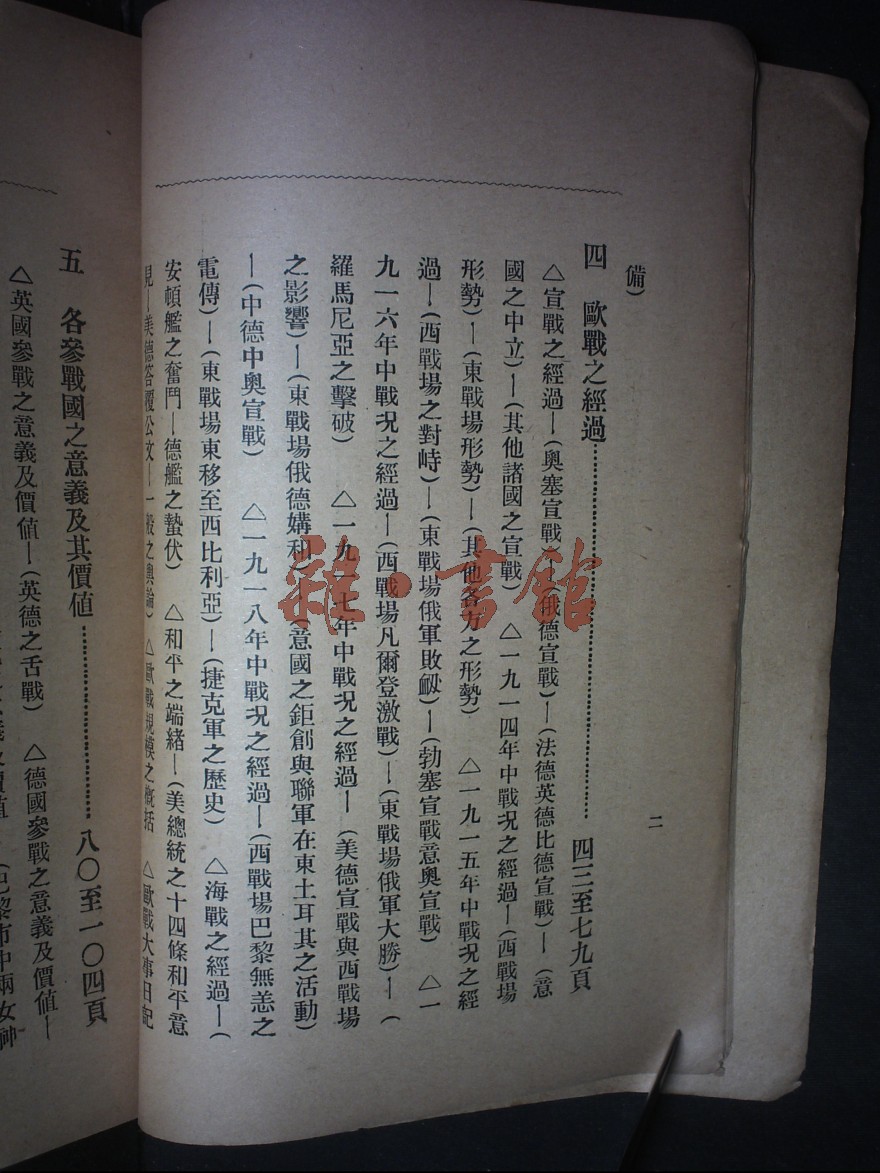 備)
四　歐戰之經過⋯⋯⋯⋯⋯⋯⋯⋯⋯⋯四三至七九頁
△宣戰之經過—(奧塞宣戰)—(俄德宣戰)—(法德英德比德宣戰)—(意
國之中立)—(其他諸國之宣戰)　△一九一四年中戰况之經過—(西戰場
形勢)—(東戰場形勢)—(其他各方之形勢)　△一九一五年中戰况之經
過—(西戰場之對峙)—(東戰場俄軍敗衂)—(勃塞宣戰意奧宣戰)　△一
九一六年中戰况之經過—(西戰場凡爾登激戰)—(東戰場俄軍大勝)—(
羅馬尼亞之擊破)　△一九一七年中戰况之經過—(美德宣戰與西戰場
之影響)—(東戰場俄德媾和)—(意國之鉅創與聯軍在東土耳其之活動)
—(中德中奧宣戰)　△一九一八年中戰况之經過—(西戰場巴黎無恙之
電傳)—(東戰場東移至西比利亞)—(捷克軍之歷史)　△海戰之經過—(
安頓艦之奮鬥—德艦之蟄伏)　△和平之端緒—(美總統之十四條和平意
見—美德答覆公文—一般之輿論)　△歐戰規模之概括　△歐戰大事日記
二
五　各參戰國之意義及其價値⋯⋯⋯⋯⋯⋯八〇至一〇四頁
△英國參戰之意義及價値—(英德之舌戰)　△德國參戰之意義及價値—
(巴黎市中兩女神
雜·書館